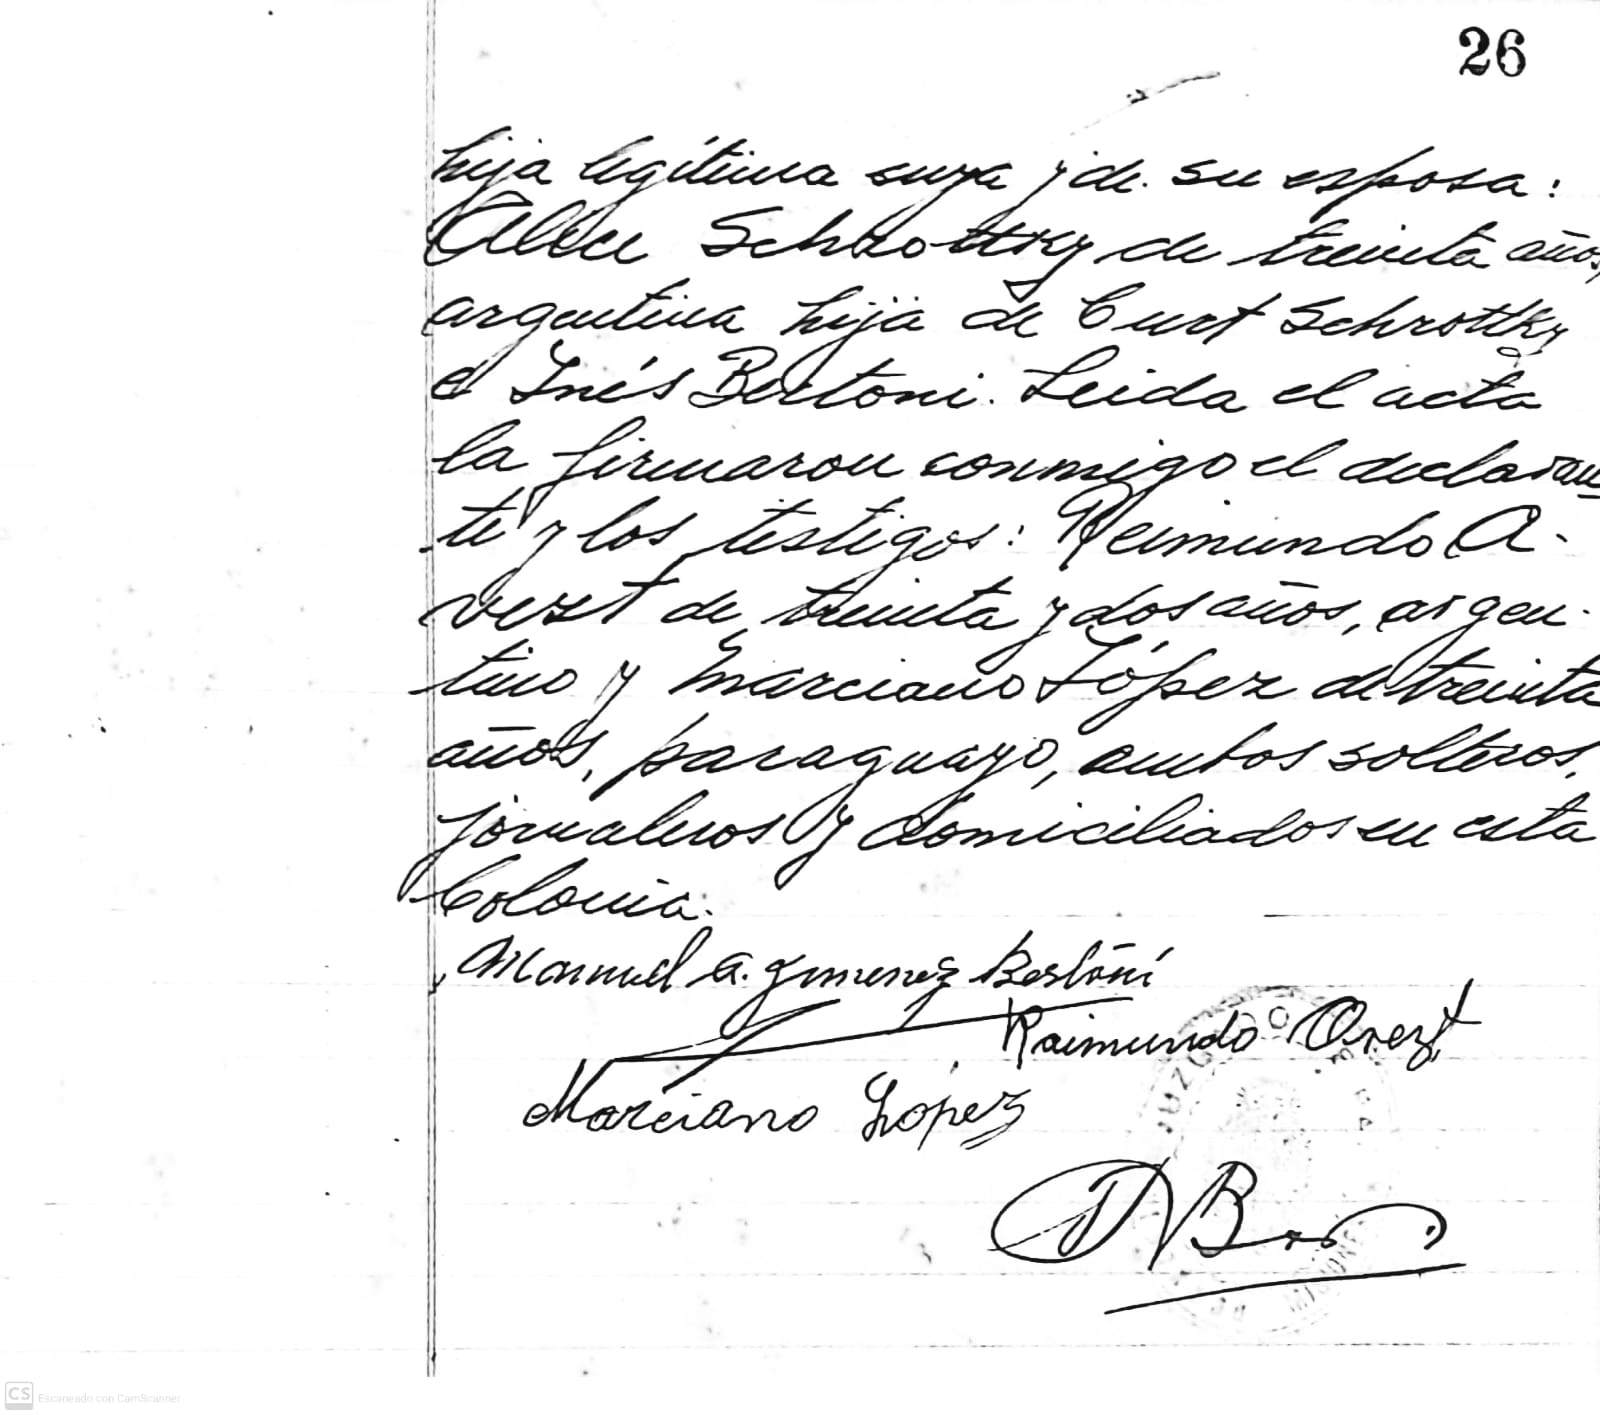 26
hija legítima suya y de su esposa:
Alice Schrottky de treinta años,
argentina hija de Curt Schrottky
é Inés Bertoni. Leida el acta
la firmaron conmigo el declaran
te y los testigos: Reimundo A.
vezt de treinta y dos años, argen-
tino y Marciano López de treinta
años, paraguayo, ambos solteros,
jornaleros y domiciliados en esta
Colonia.
Manuel A. Gimenez Bertoni
Raimundo Avezt
Marciano López
JUZGADO
MISIONES
CS Escaneado con CamScanner